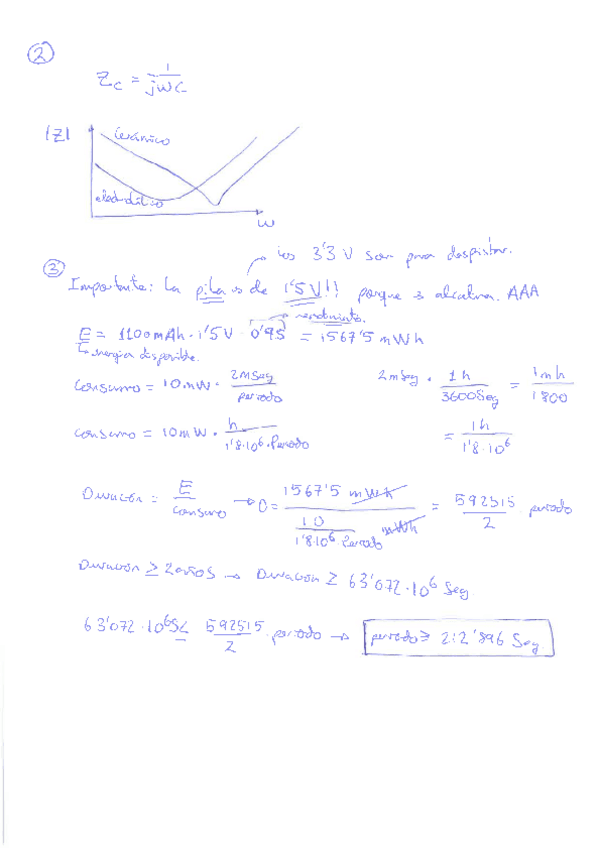 2
Zc = 1/jωC
|Z|
Cerámico
electrolítico
ω
los 3'3 V son para despistar.
3
Importante: La pila es de 1'5V!! porque es alcalina. AAA
rendimiento.
E = 1100mAh · 1'5V · 0'95 = 1567'5 mWh
energía disponible.
Consumo = 10mW · 2mSeg/periodo 2mSeg · 1h/3600Seg = 1mh/1800
consumo = 10mW · h/1'8·10⁶·Periodo = 1h/1'8·10⁶
Duración = E/consumo → D = 1567'5 mWh / 10/1'8·10⁶ Periodo mWh = 592515/2 · periodo
Duración ≥ 2años → Duración ≥ 63'072·10⁶ Seg
63'072·10⁶ ≤ 592515/2 · periodo → periodo ≥ 212'896 Seg